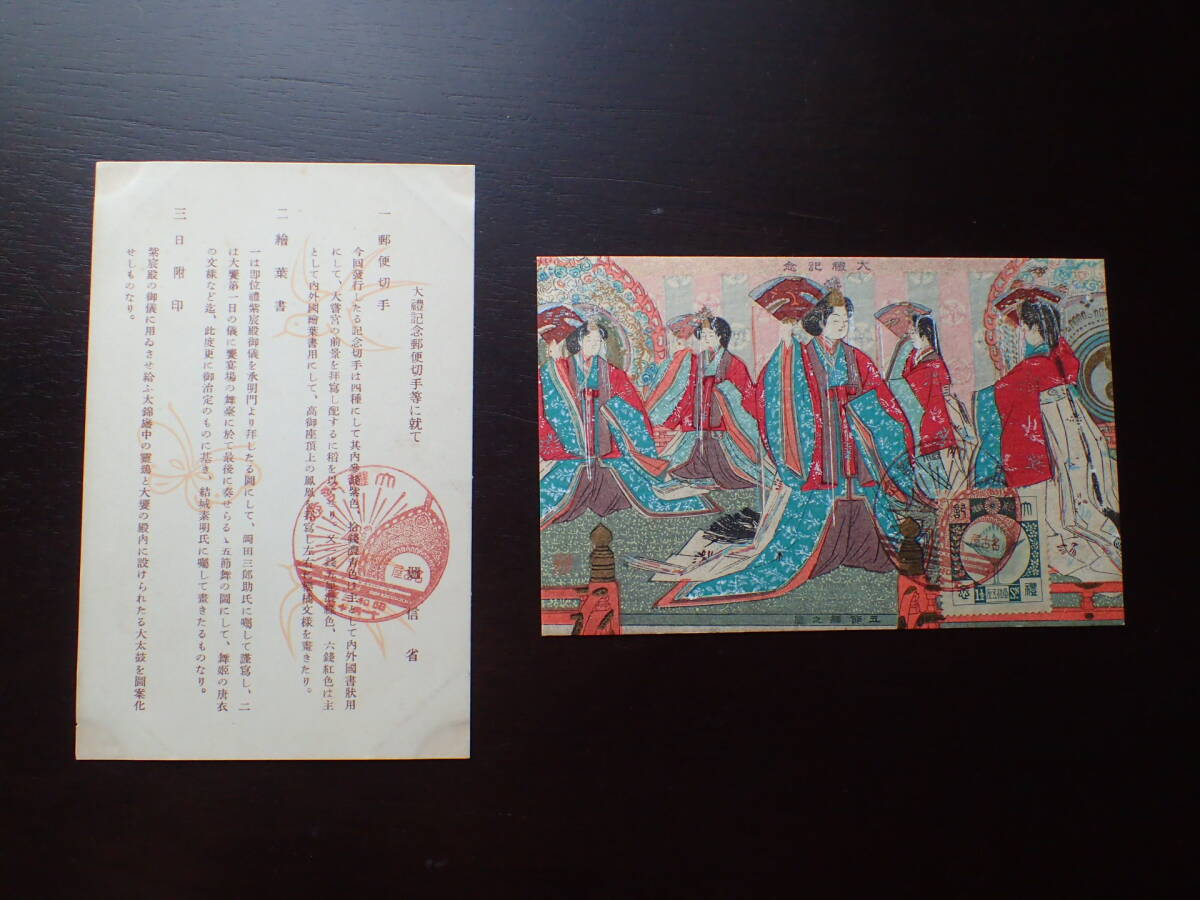 大禮記念郵便切手等に就て
遞信省
一 郵便切手
今回發行したる記念切手は四種にして其内參錢紫色、拾錢靑色は主として内外國書狀用
にして、大嘗宮の前景を拜寫し配するに稻を以てし、又一錢五厘 色、六錢紅色は主
として内外國繪葉書用にして、高御座頂上の鳳凰を 寫し左右に 橘文樣を畫きたり。
二 繪葉書
一は卽位禮紫宸殿御儀を承明門より拜したる圖にして、岡田三郞助氏に囑して謹寫し、二
は大饗第一日の儀に饗宴場の舞臺に於て最後に奏せらるゝ五節舞の圖にして、舞姬の唐衣
の文樣など迄、此度更に御治定のものに基き、結城素明氏に囑して畫きたるものなり。
三 日附印
紫宸殿の御儀に用ゐさせ給ふ大錦旛中の靈鵄と大饗の殿内に設けられたる大太鼓を圖案化
せしものなり。
大禮記念
五節舞之圖
名古屋